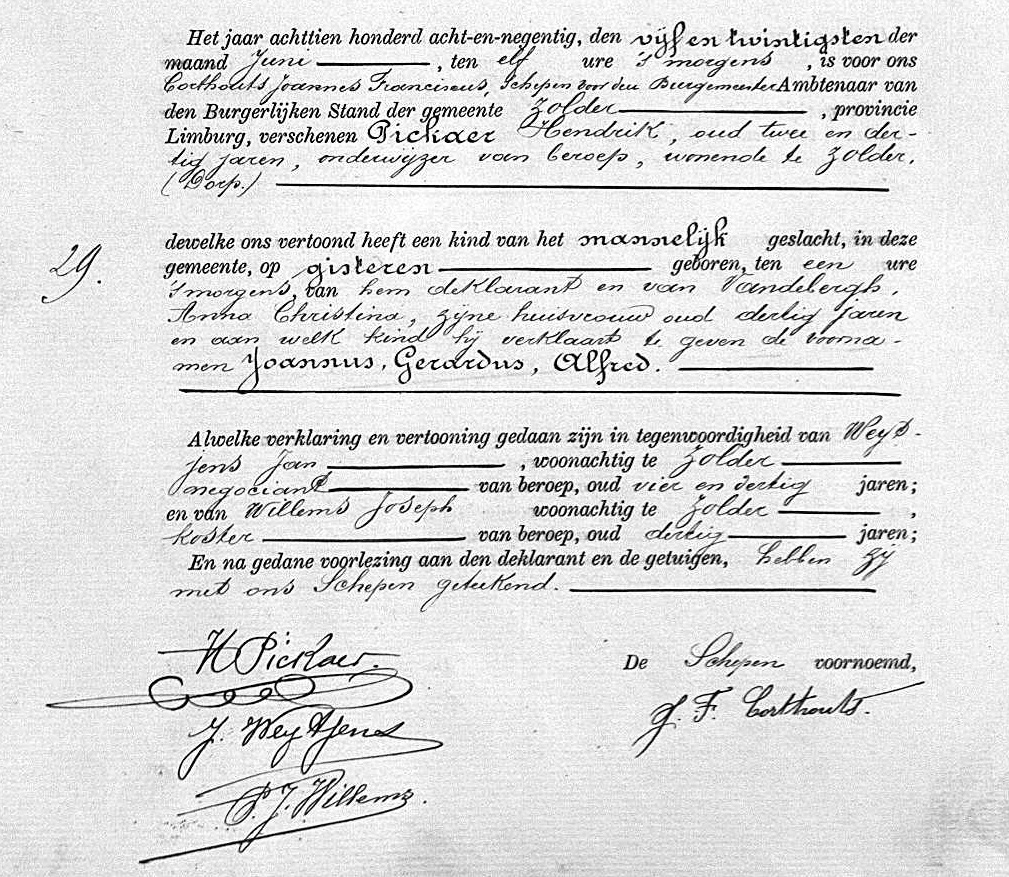 Het jaar achttien honderd acht-en-negentig, den vijf en twintigsten der
maand Juni, ten elf ure 's morgens, is voor ons
Corthouts Joannes Franciscus, Schepen voor den Burgemeester Ambtenaar van
den Burgerlijken Stand der gemeente Zolder, provincie
Limburg, verschenen Pickaer Hendrik, oud twee en der-
tig jaren, onderwyzer van beroep, wonende te Zolder.
(Dorp.)
dewelke ons vertoond heeft een kind van het mannelijk geslacht, in deze
29.
gemeente, op gisteren geboren, ten een ure
's morgens, van hem deklarant en van Vandebergh,
Anna Christina, zyne huisvrouw oud dertig jaren
en aan welk kind hy verklaart te geven de voorna-
men Joannus, Gerardus, Alfred.
Alwelke verklaring en vertooning gedaan zijn in tegenwoordigheid van Weyt-
jens Jan, woonachtig te Zolder
negociant van beroep, oud vier en dertig jaren;
en van Willems Joseph woonachtig te Zolder,
koster van beroep, oud dertig jaren;
En na gedane voorlezing aan den deklarant en de getuigen, hebben zy
met ons Schepen geteekend.
H Pickaer.
De Schepen voornoemd,
J. F. Corthouts.
J. Weytjens
P. J. Willems.